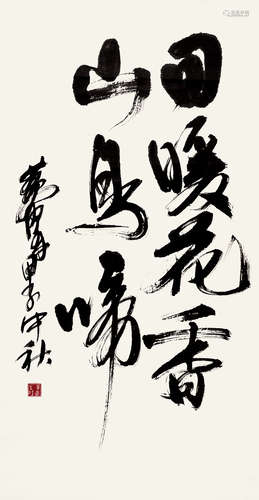 日暖花香
山鸟啼
甲子中秋